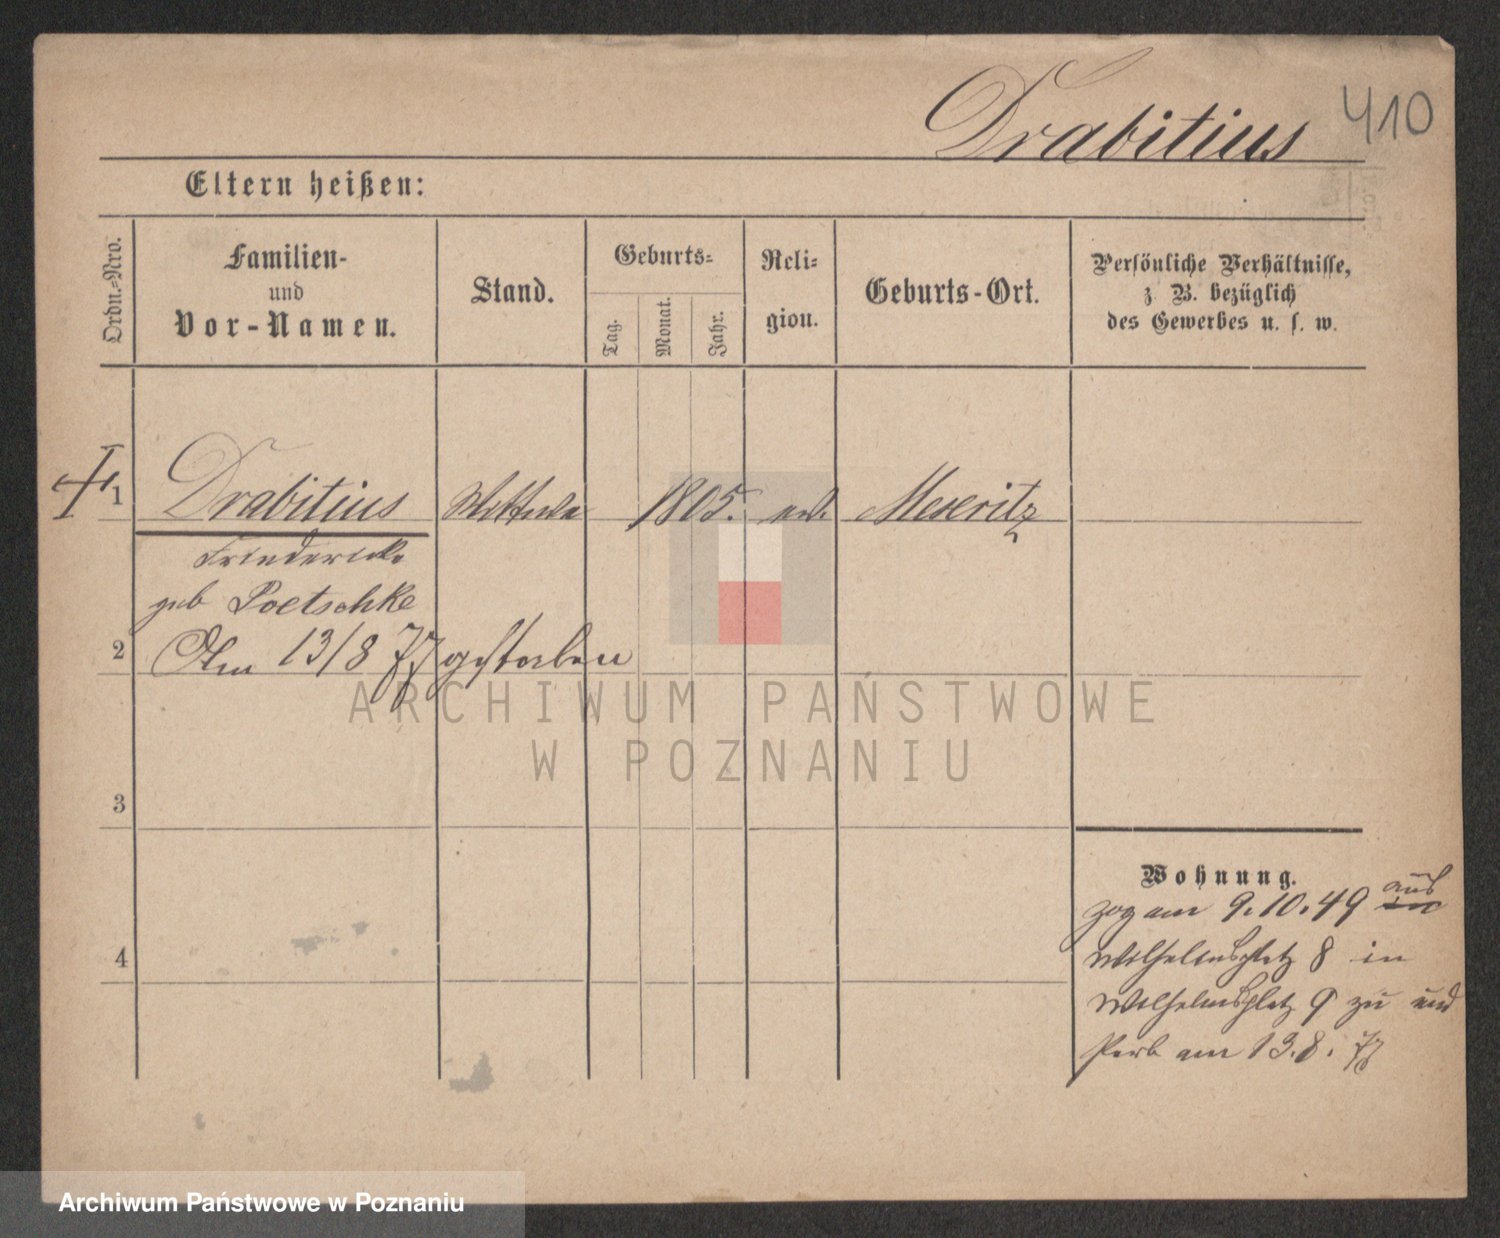 Drabitius 410
Eltern heißen:
Ordn.-Nro.
Familien-
und
Vor-Namen.
Stand.
Geburts-
Tag.
Monat.
Jahr.
Reli-
gion.
Geburts-Ort.
Persönliche Verhältnisse,
z B. bezüglich
des Gewerbes u. s. w.
1 Drabitius Wittwe 1805. ev. Meseritz
Friedericke
geb Poetschke
2 Am 13/8 77 gestorben
3
4
Wohnung.
zog am 9.10.49 aus
Wilhelmsplatz 8 in
Wilhelmsplatz 9 zu und
starb am 13.8. 77
ARCHIWUM PAŃSTWOWE
W POZNANIU
Archiwum Państwowe w Poznaniu